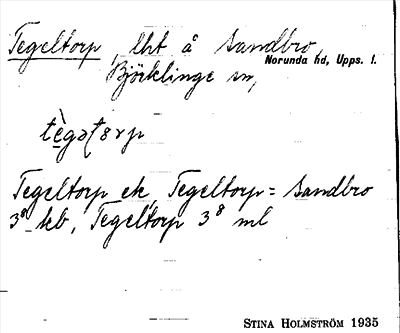 Tegeltorp, lht å Sandbro,
Norunda hd, Upps. l.
Björklinge sn,
tègəʈorp
Tegeltorp ek, Tegeltorp = Sandbro
3⁸ kb, Tegeltorp 3⁸ ml
STINA HOLMSTRÖM 1935